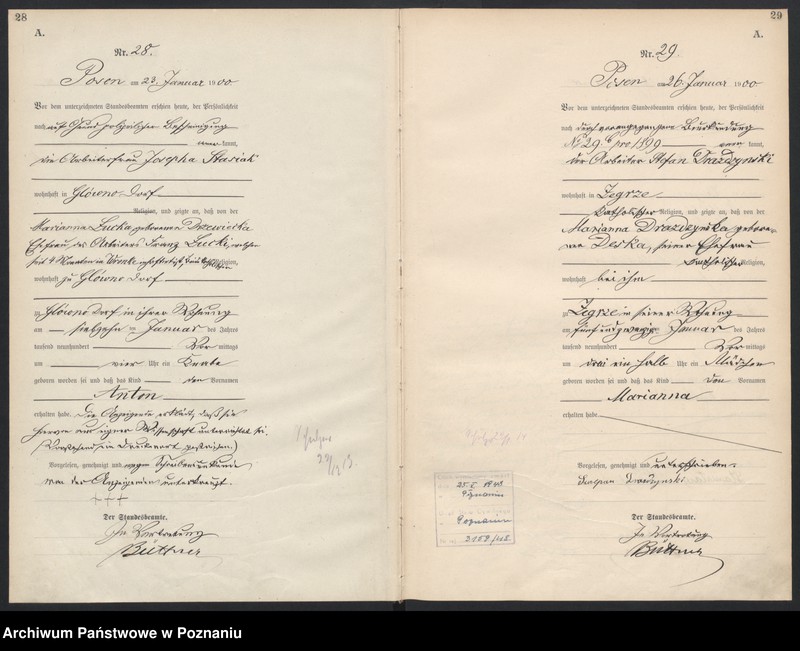 28
A.
Nr. 28.
Posen am 23. Januar 1900
Vor dem unterzeichneten Standesbeamten erschien heute, der Persönlichkeit
nach auf Grund polizeilicher Bescheinigung
kannt,
die Arbeiterfrau Josepha Stasiak
wohnhaft in Glówno Dorf
Religion, und zeigte an, daß von der
Marianna Lucka geborenen Drzewiecka
Ehefrau des Arbeiters Franz Lucki, welcher
seit 4 Monaten in Religion,
wohnhaft zu Glówno Dorf
zu Glówno Dorf in ihrer Wohnung
am siebzehn ten Januar des Jahres
tausend neunhundert Vor mittags
um vier Uhr ein Knabe
geboren worden sei und daß das Kind den Vornamen
Anton
erhalten habe. Die Anzeigende erklärt, daß sie
hiervon aus eigener Wissenschaft unterrichtet sei.
(Vorstehend ein Druckwort gestrichen.)
Vorgelesen, genehmigt und wegen Schreibensunkunde
von der Anzeigenden unterkreuzt.
+++
Der Standesbeamte.
In Vertretung
Büttner
29
A.
Nr. 29.
Posen am 26. Januar 1900
Vor dem unterzeichneten Standesbeamten erschien heute, der Persönlichkeit
nach durch vorangegangene Beurkundung
No 29 pro 1899 kannt,
der Arbeiter Stefan Drazdzynski
wohnhaft in Zegrze
katholischer Religion, und zeigte an, daß von der
Marianna Drazdzynska gebore-
nen Deska, seiner Ehefrau
katholischer Religion,
wohnhaft bei ihm
zu Zegrze in seiner Wohnung
am fünfundzwanzig ten Januar des Jahres
tausend neunhundert Vor mittags
um drei ein halb Uhr ein Mädchen
geboren worden sei und daß das Kind den Vornamen
Marianna
erhalten habe
Vorgelesen, genehmigt und unterschrieben.
Der Standesbeamte.
In Vertretung
Büttner
Poznaniu
Archiwum Państwowe w Poznaniu